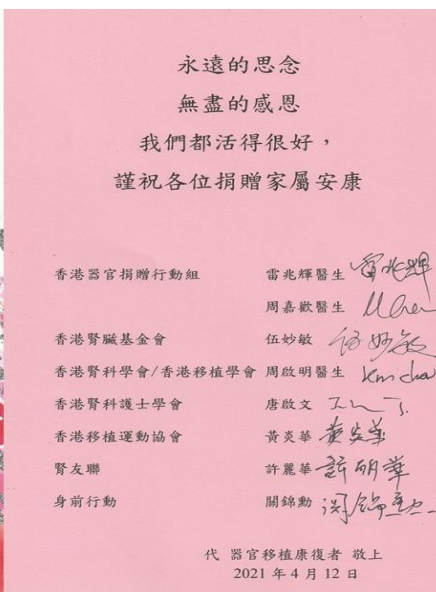 永遠的思念
無盡的感恩
我們都活得很好，
謹祝各位捐贈家屬安康
香港器官捐贈行動組 雷兆輝醫生 雷兆輝
周嘉歡醫生
香港腎臟基金會 伍妙敏 伍妙敏
香港腎科學會/香港移植學會 周啟明醫生
香港腎科護士學會 唐啟文
香港移植運動協會 黃炎華 黃炎华
腎友聯 許麗華
身前行動 關錦勳
代 器官移植康復者 敬上
2021 年 4 月 12 日